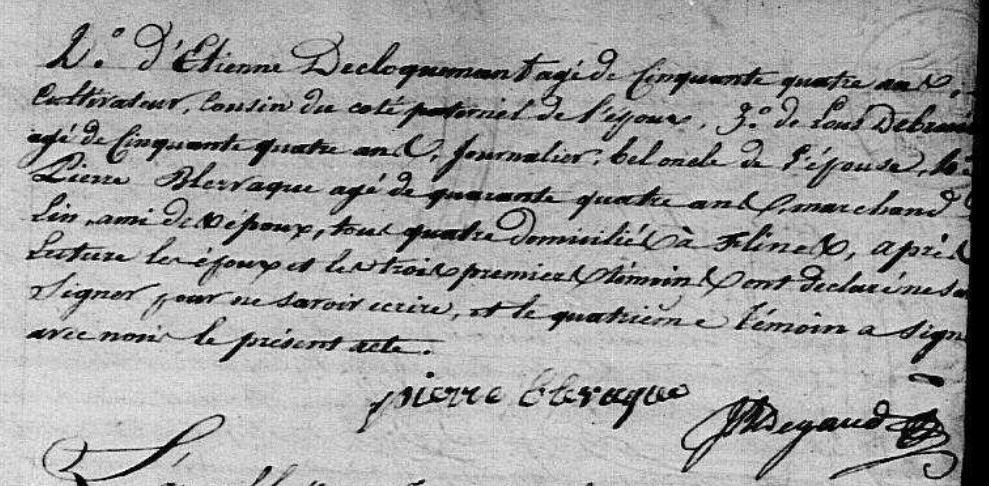 2.° d'Etienne Decloquemant agé de Cinquante quatre ans,
Cultivateur, Cousin du coté paternel de l'époux, 3.° de Louis
agé de Cinquante quatre ans, Journalier, bel oncle de l'épouse, 4.°
Pierre Blervaque agé de quarante quatre ans, marchand
Lin, ami de l'époux, tous quatre domiciliés à Flines, après
Lecture les époux et les trois premiers témoins ont declaré ne
Signer pour ne savoir ecrire, et le quatrième témoin a signé
avec nous le présent acte.
pierre blervaque